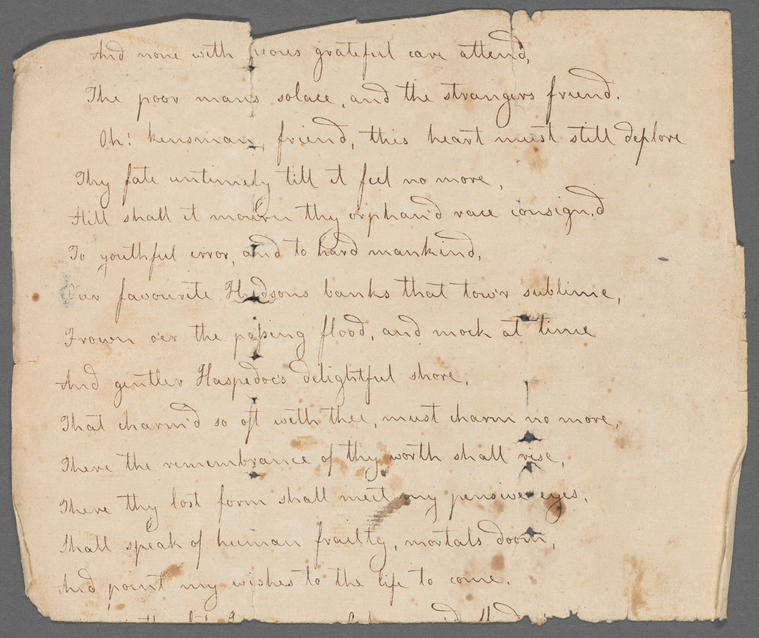 And none with pious grateful care attend,
The poor mans solace, and the strangers friend.
Oh! kinsman, friend, this heart must still deplore
Thy fate untimely till it feel no more,
Still shall it mourn thy orphan'd race consign'd
To youthful error, and to hard mankind,
Our favourite Hudsons banks that tow'r sublime,
Frown o'er the passing flood, and mock at time
And gentler Haspedocs delightful shore,
That charm'd so oft with thee, must charm no more,
There the remembrance of thy worth shall rise,
There thy lost form shall meet my pensive eyes,
Shall speak of human frailty, mortals doom,
And point my wishes to the life to come.